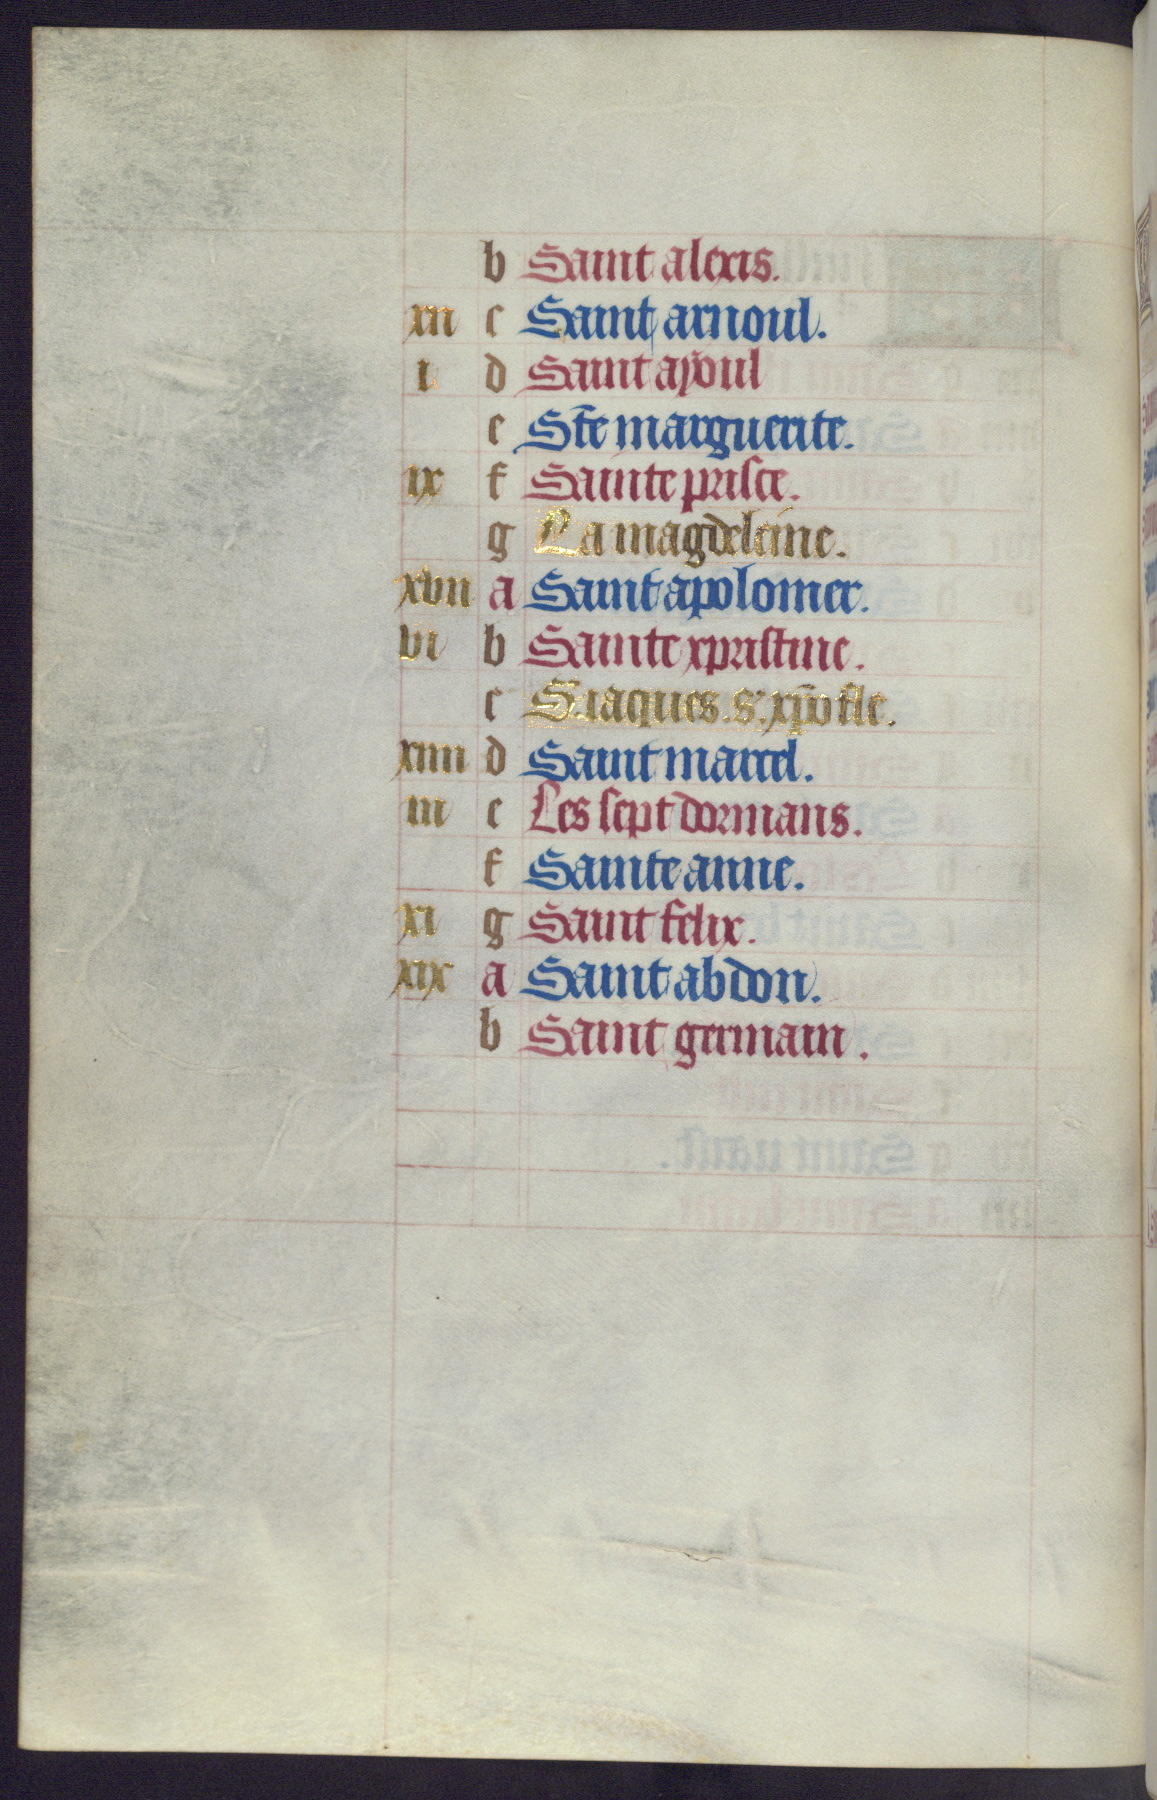 b Saint alexis.
xii c Saint arnoul.
i d Saint
e Ste marguerite.
ix f Sainte prisce.
g La magdeleine.
xvii a Saint apolomer.
vi b Sainte xpristine.
c S. iaques. s. xpofle.
xiiii d Saint marcel.
iii e Les sept dormans.
f Sainte anne.
xi g Saint felix.
xix a Saint abdon.
b Saint germain.